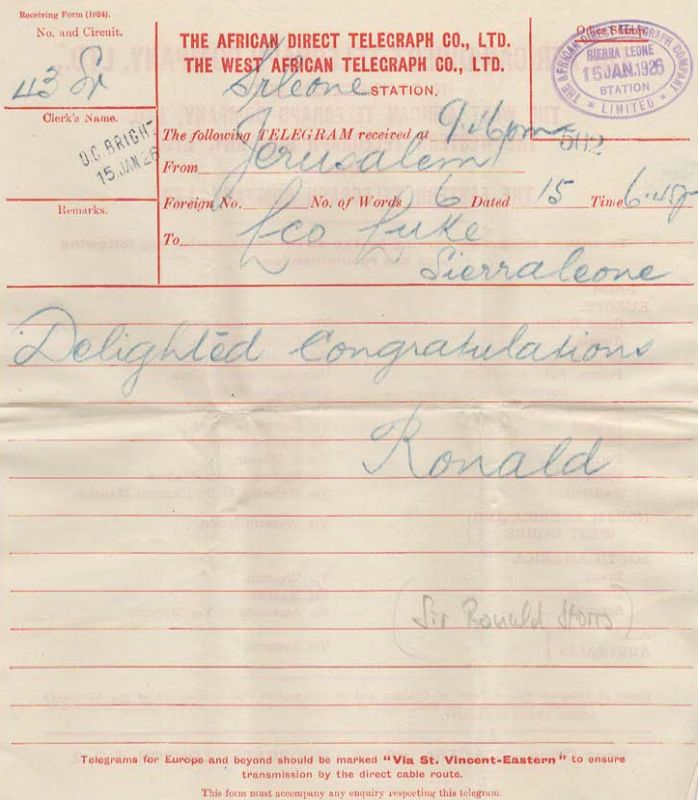 Receiving Form (1924).
No. and Circuit.
43
Clerk's Name.
O.C. BRIGH-
15 JAN 26
Remarks.
THE AFRICAN DIRECT TELEGRAPH CO., LTD.
THE WEST AFRICAN TELEGRAPH CO., LTD.
Srleone STATION.
Office Stamp.
THE AFRICAN DIRECT TELEGRAPH COMPANY
SIERRA LEONE
15 JAN. 1926
STATION
LIMITED
The following TELEGRAM received at 9.16pm
502
From Jerusalem
Foreign No. No. of Words 6 Dated 15 Time 6.45p
To Luke
Sierraleone
Delighted Congratulations
Ronald
(Sir Ronald Storrs)
Telegrams for Europe and beyond should be marked "Via St. Vincent-Eastern" to ensure
transmission by the direct cable route.
This form must accompany any enquiry respecting this telegram.